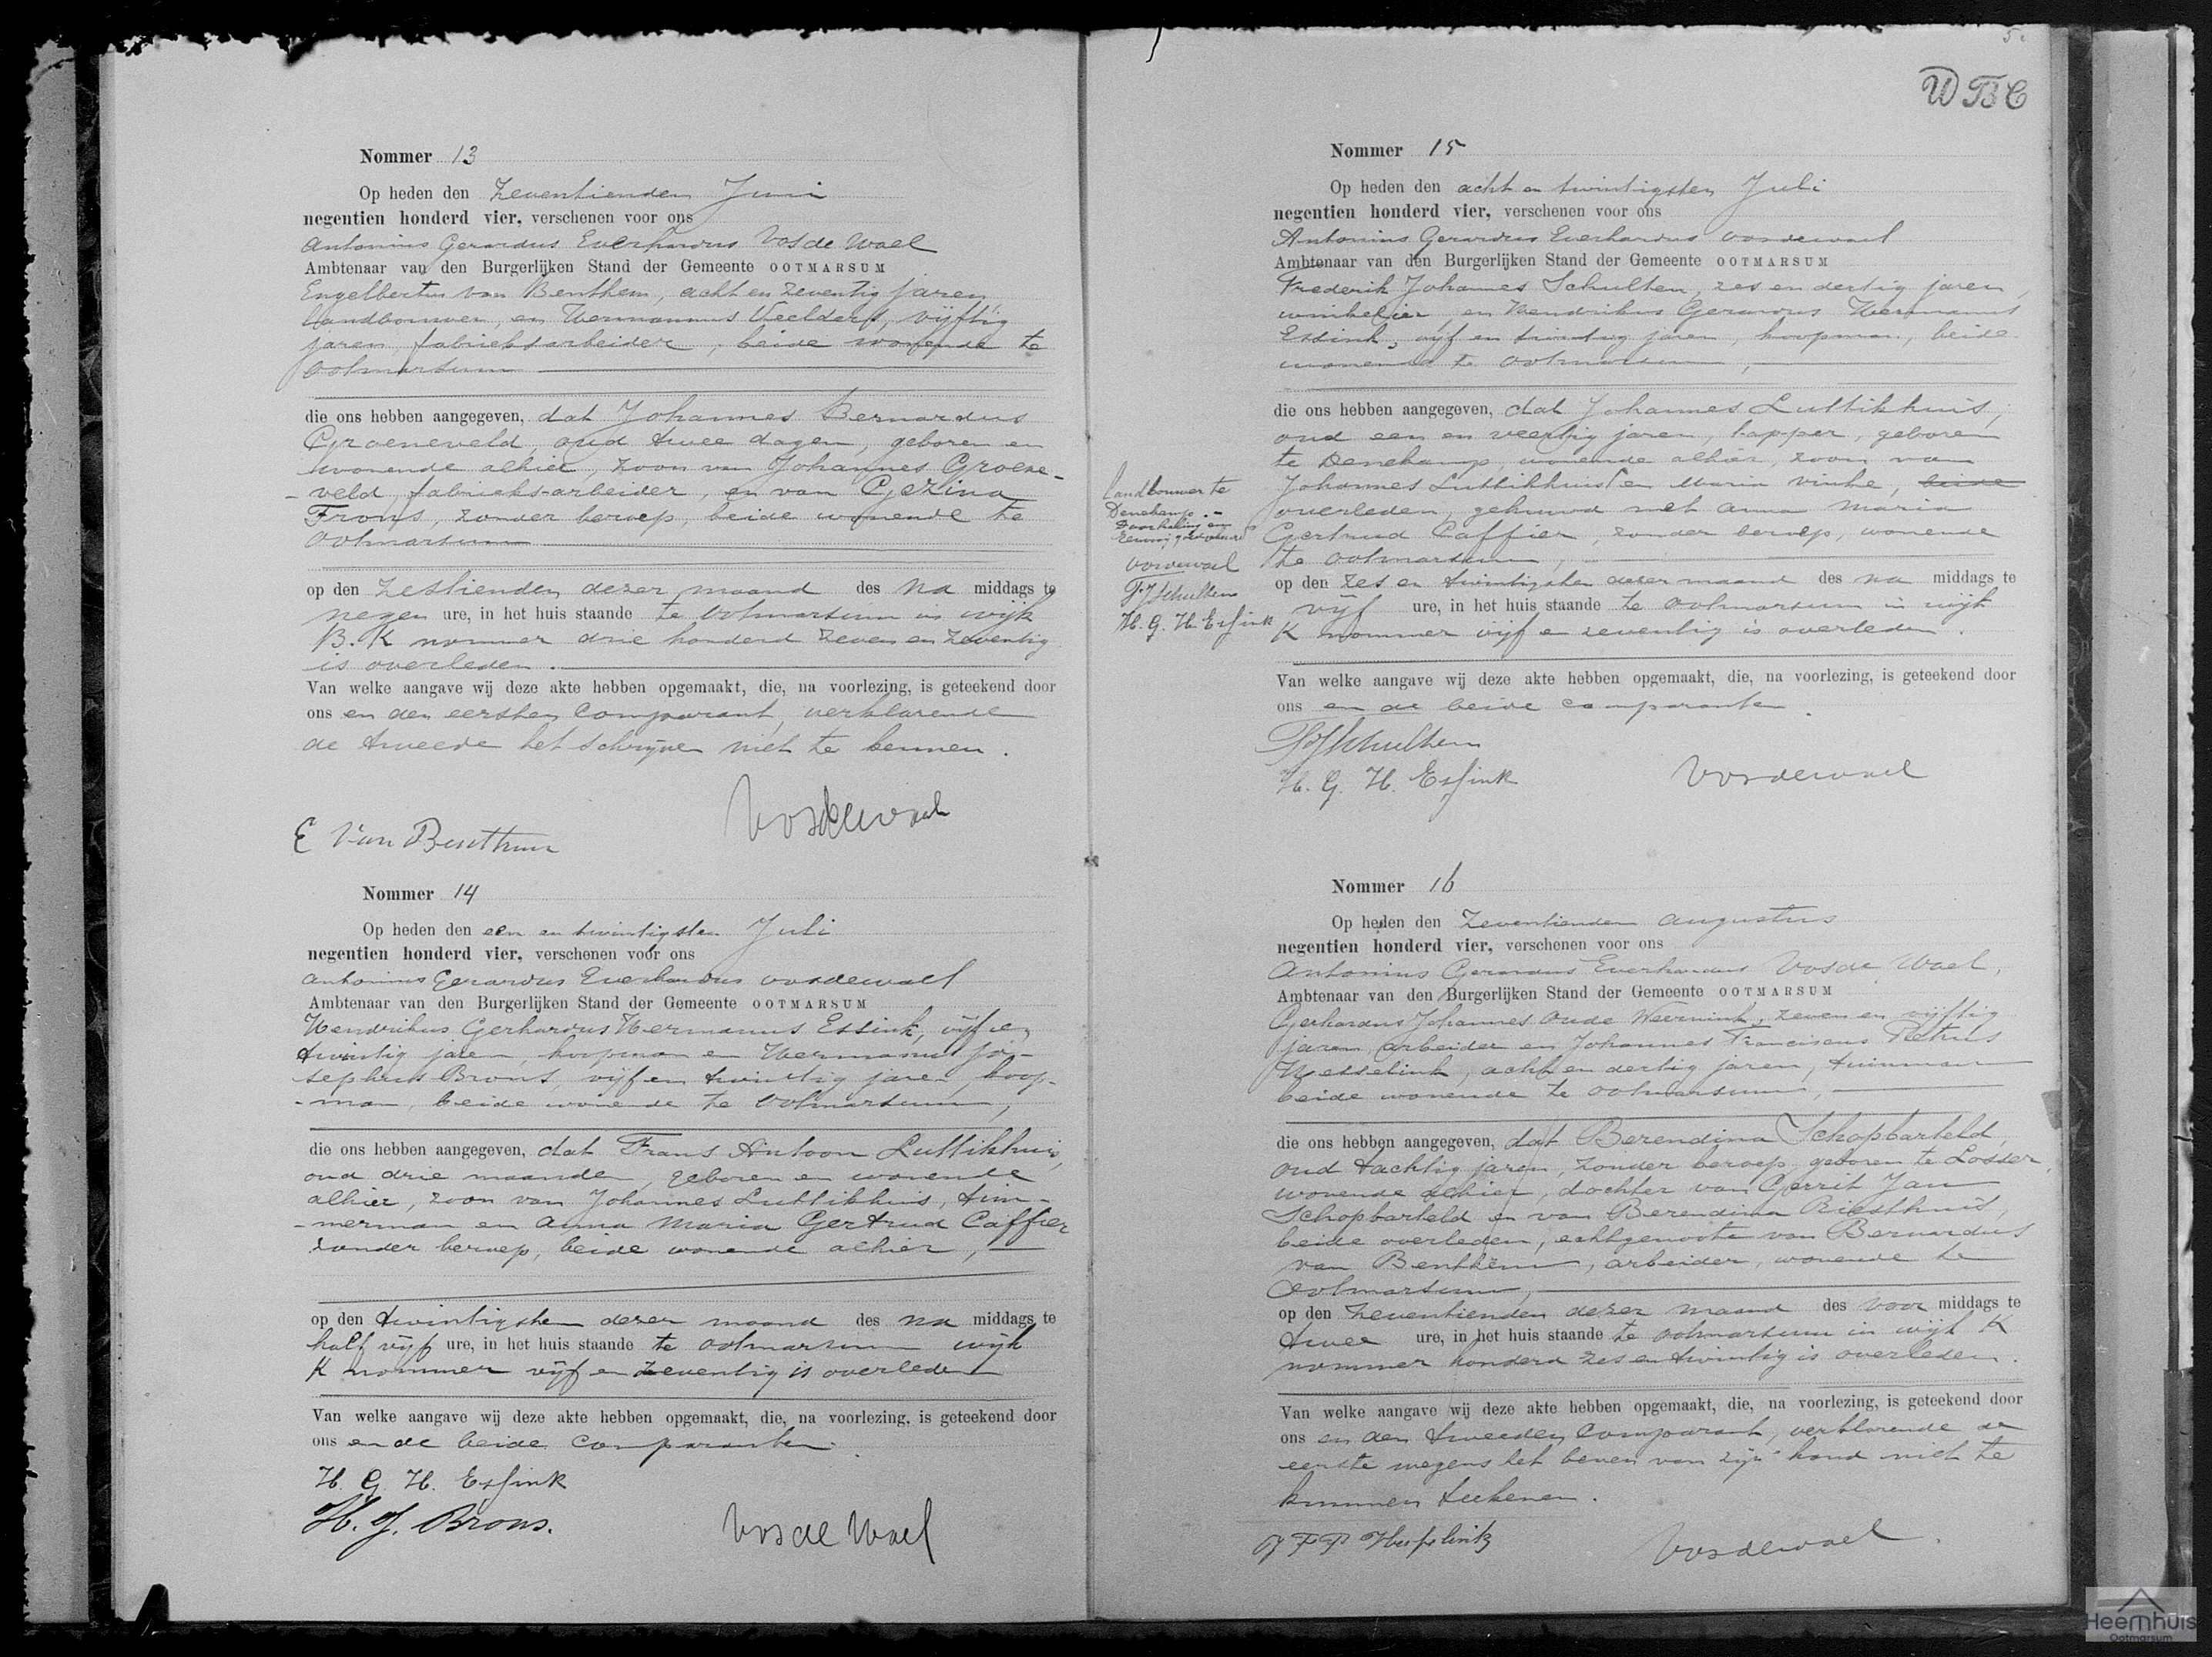 Nommer 13
Op heden den zeventienden Juni
negentien honderd vier, verschenen voor ons
Antonius Gerardus Everhardus Vos de Wael
Ambtenaar van den Burgerlijken Stand der Gemeente OOTMARSUM
Engelbertus van Benthem, acht en zeventig jaren,
landbouwer, en Hermannus Veelders, vijftig
jaren, fabrieksarbeider, beide wonende te
Ootmarsum
die ons hebben aangegeven, dat Johannes Bernardus
Groeneveld, oud twee dagen, geboren en
wonende alhier, zoon van Johannes Groene-
-veld, fabrieks-arbeider, en van Gezina
Frons, zonder beroep, beide wonende te
Ootmarsum
op den zestienden dezer maand des na middags te
negen ure, in het huis staande te Ootmarsum in wijk
B. K nommer drie honderd zeven en zeventig
is overleden.
Van welke aangave wij deze akte hebben opgemaakt, die, na voorlezing, is geteekend door
ons en den eersten Comparant, verklarende
de tweede het schrijven niet te kennen.
Vosdewael
E Van Benthem
Nommer 14
Op heden den een en twintigsten Juli
negentien honderd vier, verschenen voor ons
Antonius Gerardus Everhardus vosdewael
Ambtenaar van den Burgerlijken Stand der Gemeente OOTMARSUM
Hendrikus Gerhardus Hermannus Essink, vijf en
twintig jaren, koopman en Hermannus Jo-
sephus Brons, vijf en twintig jaren, koop-
-man, beide wonende te Ootmarsum,
die ons hebben aangegeven, dat Frans Antoon Luttikhuis,
oud drie maanden, geboren en wonende
alhier, zoon van Johannes Luttikhuis, tim-
-merman en Anna Maria Gertrud Caffier
zonder beroep, beide wonende alhier,
op den twintigsten dezer maand des na middags te
half vijf ure, in het huis staande te Ootmarsum wijk
K nommer vijf en zeventig is overleden
Van welke aangave wij deze akte hebben opgemaakt, die, na voorlezing, is geteekend door
ons en de beide comparanten.
H. G. H. Essink
H. J. Brons.
Vos de Wael
5.
WBC
Nommer 15
Op heden den acht en twintigsten Juli
negentien honderd vier, verschenen voor ons
Antonius Gerardus Everhardus vosdewael
Ambtenaar van den Burgerlijken Stand der Gemeente OOTMARSUM
Frederik Johannes Schulten, zes en dertig jaren,
winkelier, en Hendrikus Gerardus Hermannus
Essink, vijf en twintig jaren, koopman, beide
wonende te Ootmarsum,
die ons hebben aangegeven, dat Johannes Luttikhuis,
oud een en veertig jaren, tapper, geboren
te Denekamp, wonende alhier, zoon van
Johannes Luttikhuis en Maria Vinke, beide
overleden, gehuwd met Anna Maria
Gertrud Caffier, zonder beroep, wonende
te Ootmarsum,
landbouwer te
Denekamp.
Doorhaling en
vosdewael
FJSchulten
H. G. H. Essink
op den zes en twintigsten dezer maand des na middags te
vijf ure, in het huis staande te Ootmarsum in wijk
K nommer vijf en zeventig is overleden.
Van welke aangave wij deze akte hebben opgemaakt, die, na voorlezing, is geteekend door
ons en de beide comparanten.
FJSchulten
H. G. H. Essink
Vosdewael
Nommer 16
Op heden den zeventienden Augustus
negentien honderd vier, verschenen voor ons
Antonius Gerardus Everhardus Vos de Wael,
Ambtenaar van den Burgerlijken Stand der Gemeente OOTMARSUM
Gerhardus Johannes Oude Weernink, zeven en vijftig
jaren, arbeider en Johannes Franciscus Petrus
Hesselink, acht en dertig jaren, tuinman
beide wonende te Ootmarsum,
die ons hebben aangegeven, dat Berendina Schopbarteld,
oud tachtig jaren, zonder beroep, geboren te Losser,
wonende alhier, dochter van Gerrit Jan
Schopbarteld en van Berendina Riesthuis,
beide overleden, echtgenoote van Bernardus
van Benthem, arbeider, wonende te
Ootmarsum,
op den zeventienden dezer maand des voor middags te
twee ure, in het huis staande te Ootmarsum in wijk K
nommer honderd zes en twintig is overleden.
Van welke aangave wij deze akte hebben opgemaakt, die, na voorlezing, is geteekend door
ons en den tweeden Comparant, verklarende de
eerste wegens het beven van zijn hand niet te
kunnen teekenen.
J F P Hesselink
Vosdewael.
Heemhuis
Ootmarsum